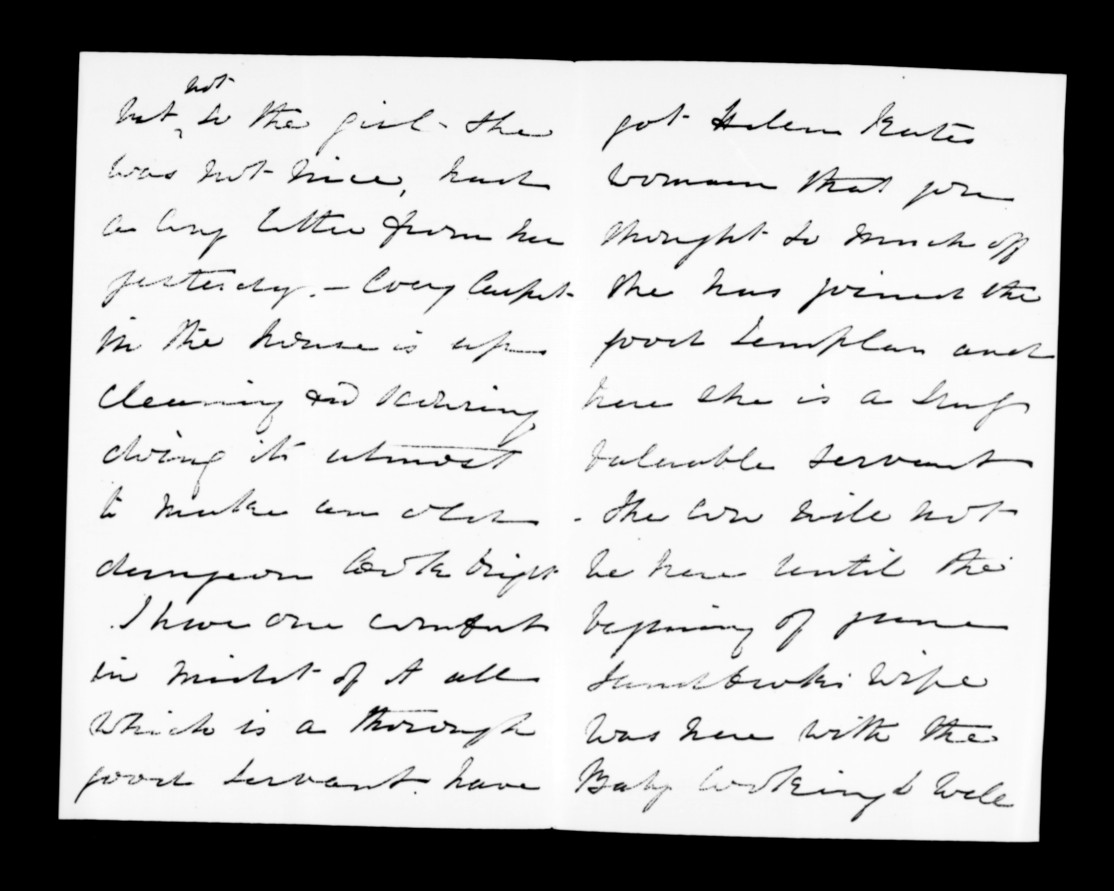 but not so the girl - she
was not nice, had
a long letter from her
yesterday. - Every Carpet
in the house is up
cleaning and scouring
doing its utmost
to make an old
dungeon look bright
. I have one comfort
in midst of it all
which is a thorough
good servant. have
got Helen
woman that you
thought so much off
she has joined the
good Templar and
here she is a
valuable servant
- The Cow will not
be here until the
begining of june
wife
was here with the
Baby looking so well